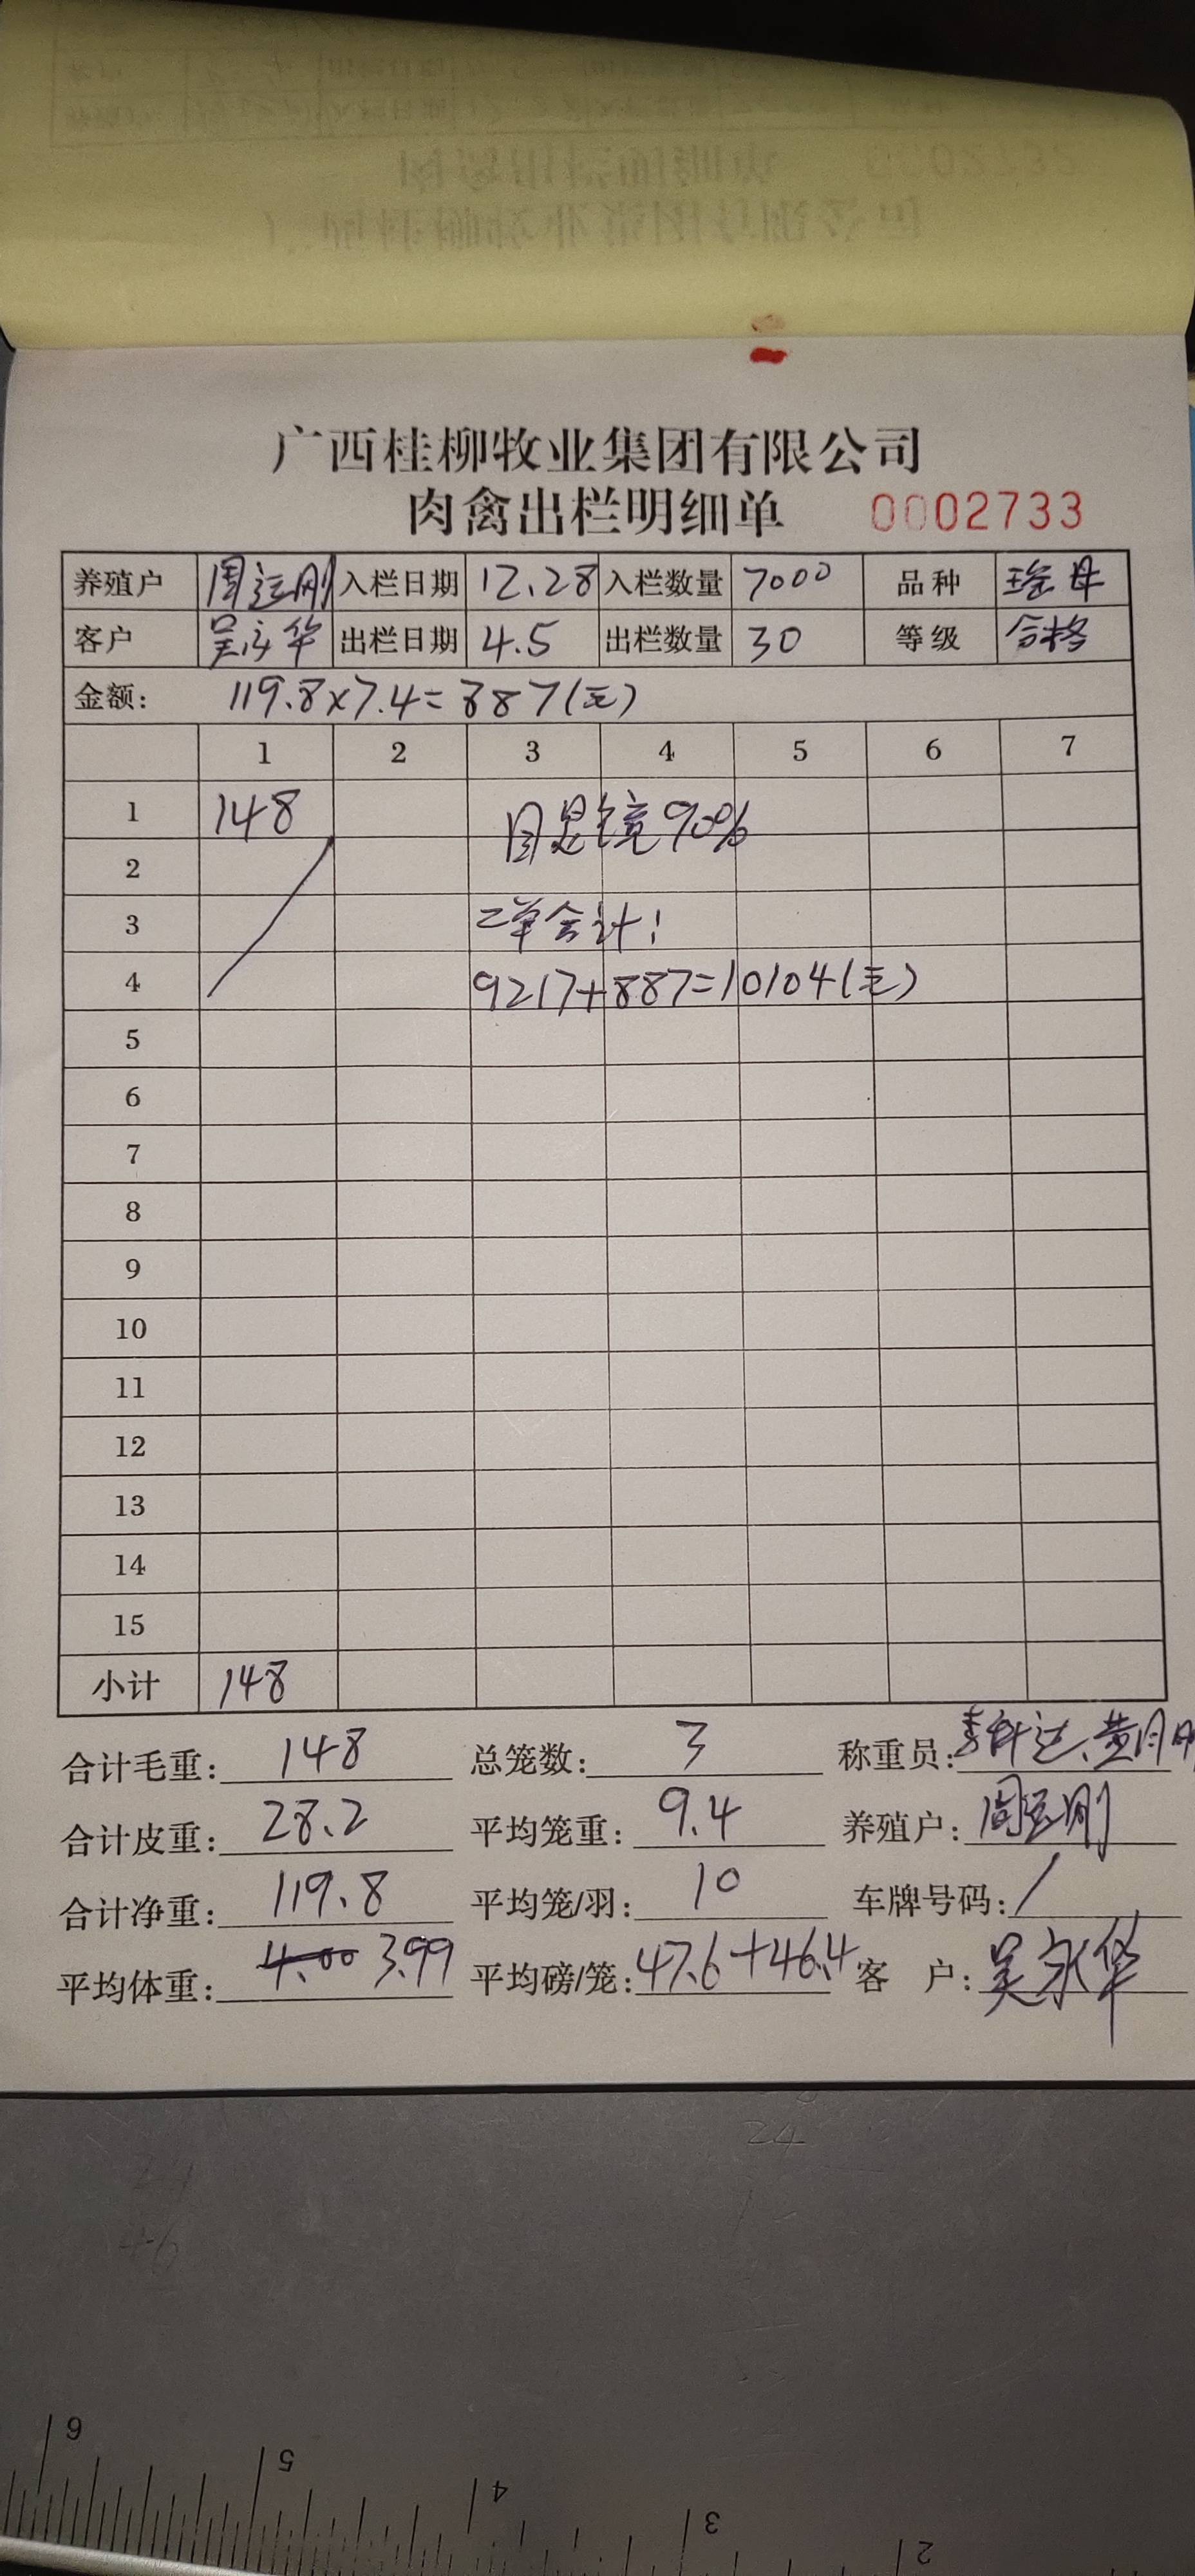 广西桂柳牧业集团有限公司
肉禽出栏明细单 0002733
养殖户 周运刚 入栏日期 12.28 入栏数量 7000 品种 瑶母
客户 吴永华 出栏日期 4.5 出栏数量 30 等级 合格
金额: 119.8×7.4=887(元)
1 2 3 4 5 6 7
1 148 90%
2
3 二单合计:
4 9217+887=10104(元)
5
6
7
8
9
10
11
12
13
14
15
小计 148
合计毛重: 148 总笼数: 3 称重员: 李科达、黄月明
合计皮重: 28.2 平均笼重: 9.4 养殖户: 周运刚
合计净重: 119.8 平均笼/羽: 10 车牌号码: /
平均体重: 4.00 3.99 平均磅/笼: 47.6+46.4 客 户: 吴永华
6 5 4 3 2